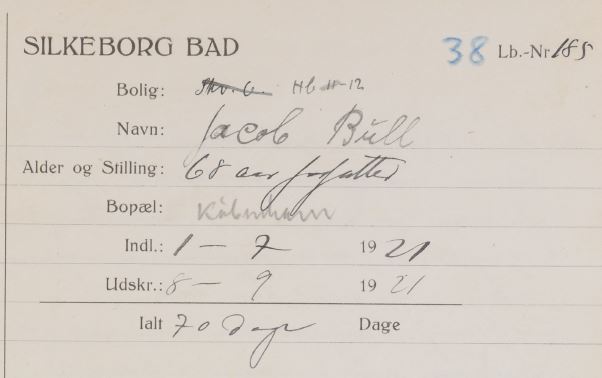 SILKEBORG BAD 38 Lb.-Nr 185
Bolig: Hb 11-12
Navn: Jacob Bull
Alder og Stilling: 68 aar forfatter
Bopæl: København
Indl.: 1 - 7 1921
Udskr.: 8 - 9 1921
Ialt 70 Dage Dage